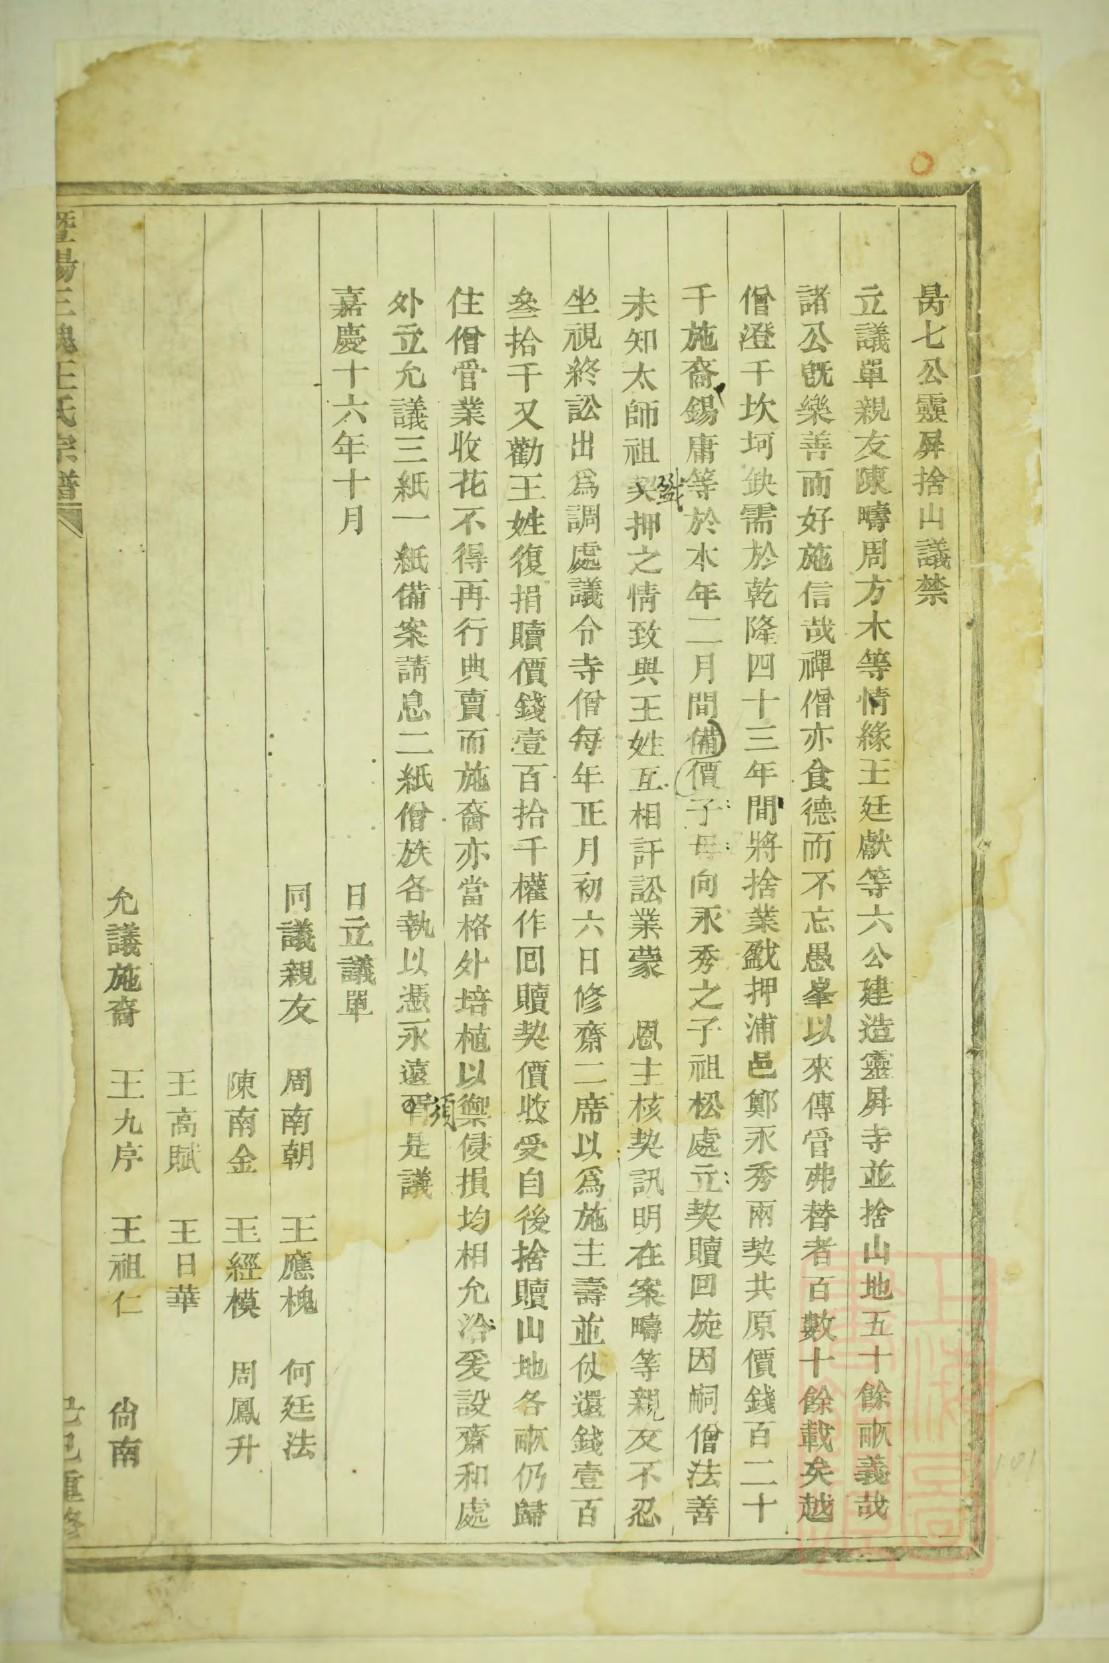 昺七公靈屛捨山議禁
立議單親友陳疇周方木等情緣王廷獻等六公建造靈屛寺並捨山地五十餘畝義哉
諸公旣樂善而好施信哉禪僧亦食德而不忘愚峯以來傳管弗替者百數十餘載矣越
僧澄干坎坷鈌需於乾隆四十三年間將捨業戤押浦邑鄭永秀兩契共原價錢百二十
千施裔錫庸等於本年二月間備價子母向永秀之子祖松處立契贖回施因嗣僧法善
未知太師祖契戤押之情致與王姓互相訐訟業蒙 恩主核契訊明在案疇等親友不忍
坐視終訟出爲調處議令寺僧每年正月初六日修齋二席以爲施主壽並伏還錢壹百
叁拾千又勸王姓復捐贖價錢壹百拾千權作回贖契價收受自後捨贖山地各畝仍歸
住僧管業收花不得再行典賣而施裔亦當格外培植以禦侵損均相允洽爰設齋和處
外立允議三紙一紙備案請息二紙僧族各執以憑永遠須是議
嘉慶十六年十月 日立議單
同議親友 周南朝 王應槐 何廷法
陳南金 王經模 周鳳升
王高賦 王日華
允議施裔 王九序 王祖仁 尙南
暨陽三槐王氏宗譜 己巳重修